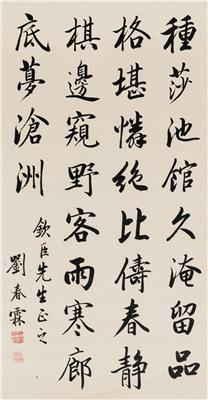 種莎池館久淹留品
格堪憐絶比儔春静
棋邊窺野客雨寒廊
底夢滄洲
欽臣先生正之
劉春霖